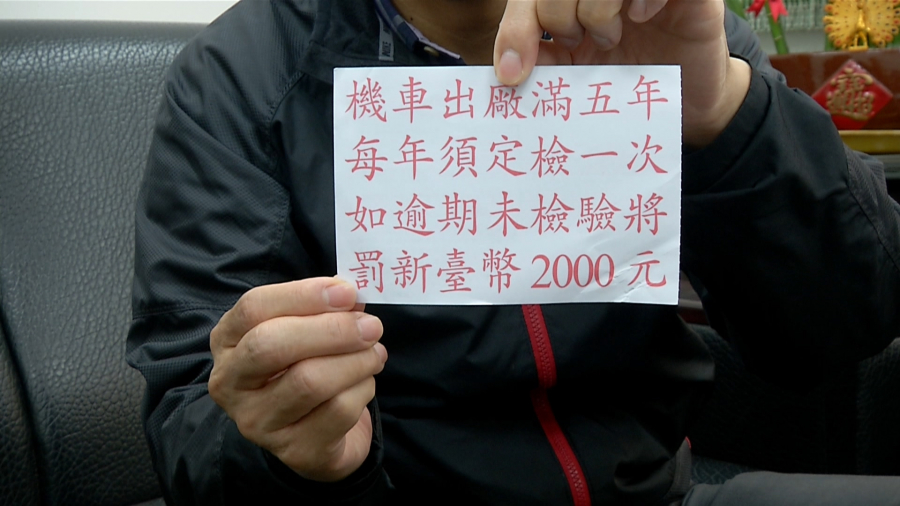 機車出廠滿五年
每年須定檢一次
如逾期未檢驗將
罰新臺幣2000元